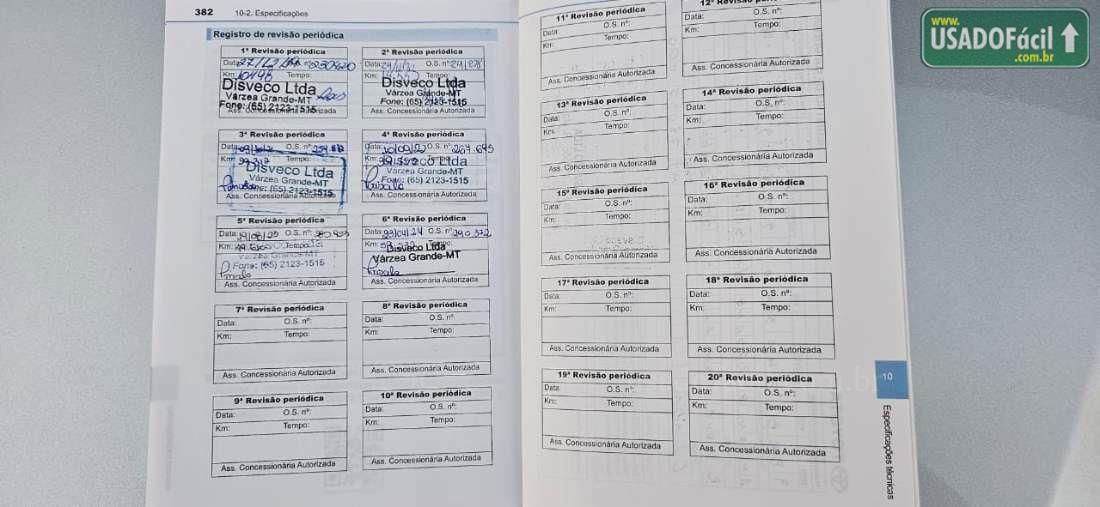 382 10-2. Especificações
Registro de revisão periódica
1ª Revisão periódica
Data: O.S. nº:
Km: 10498 Tempo:
Disveco Ltda
Várzea Grande-MT
Fone: (65) 2123-1515
Ass. Concessionária Autorizada
2ª Revisão periódica
Data: O.S. nº:
Km: Tempo:
Disveco Ltda
Várzea Grande-MT
Fone: (65) 2123-1515
Ass. Concessionária Autorizada
3ª Revisão periódica
Data: O.S. nº:
Km: Tempo:
Disveco Ltda
Várzea Grande-MT
Fone: (65) 2123-1515
Ass. Concessionária Autorizada
4ª Revisão periódica
Data: 10/02/23 O.S. nº: 267.695
Km: Tempo:
Disveco Ltda
Várzea Grande-MT
Fone: (65) 2123-1515
Ass. Concessionária Autorizada
5ª Revisão periódica
Data: O.S. nº:
Km: Tempo:
Várzea Grande-MT
Fone: (65) 2123-1515
Ass. Concessionária Autorizada
6ª Revisão periódica
Data: 23/04/24 O.S. nº: 290.372
Km: Tempo:
Disveco Ltda
Várzea Grande-MT
Ass. Concessionária Autorizada
7ª Revisão periódica
Data: O.S. nº:
Km: Tempo:
Ass. Concessionária Autorizada
8ª Revisão periódica
Data: O.S. nº:
Km: Tempo:
Ass. Concessionária Autorizada
9ª Revisão periódica
Data: O.S. nº:
Km: Tempo:
Ass. Concessionária Autorizada
10ª Revisão periódica
Data: O.S. nº:
Km: Tempo:
Ass. Concessionária Autorizada
11ª Revisão periódica
Data: O.S. nº:
Km: Tempo:
Ass. Concessionária Autorizada
12ª Revisão periódica
Data: O.S. nº:
Km: Tempo:
Ass. Concessionária Autorizada
13ª Revisão periódica
Data: O.S. nº:
Km: Tempo:
Ass. Concessionária Autorizada
14ª Revisão periódica
Data: O.S. nº:
Km: Tempo:
Ass. Concessionária Autorizada
15ª Revisão periódica
Data: O.S. nº:
Km: Tempo:
Ass. Concessionária Autorizada
16ª Revisão periódica
Data: O.S. nº:
Km: Tempo:
Ass. Concessionária Autorizada
17ª Revisão periódica
Data: O.S. nº:
Km: Tempo:
Ass. Concessionária Autorizada
18ª Revisão periódica
Data: O.S. nº:
Km: Tempo:
Ass. Concessionária Autorizada
19ª Revisão periódica
Data: O.S. nº:
Km: Tempo:
Ass. Concessionária Autorizada
20ª Revisão periódica
Data: O.S. nº:
Km: Tempo:
Ass. Concessionária Autorizada
10
Especificações técnicas
USADOFácil
.com.br